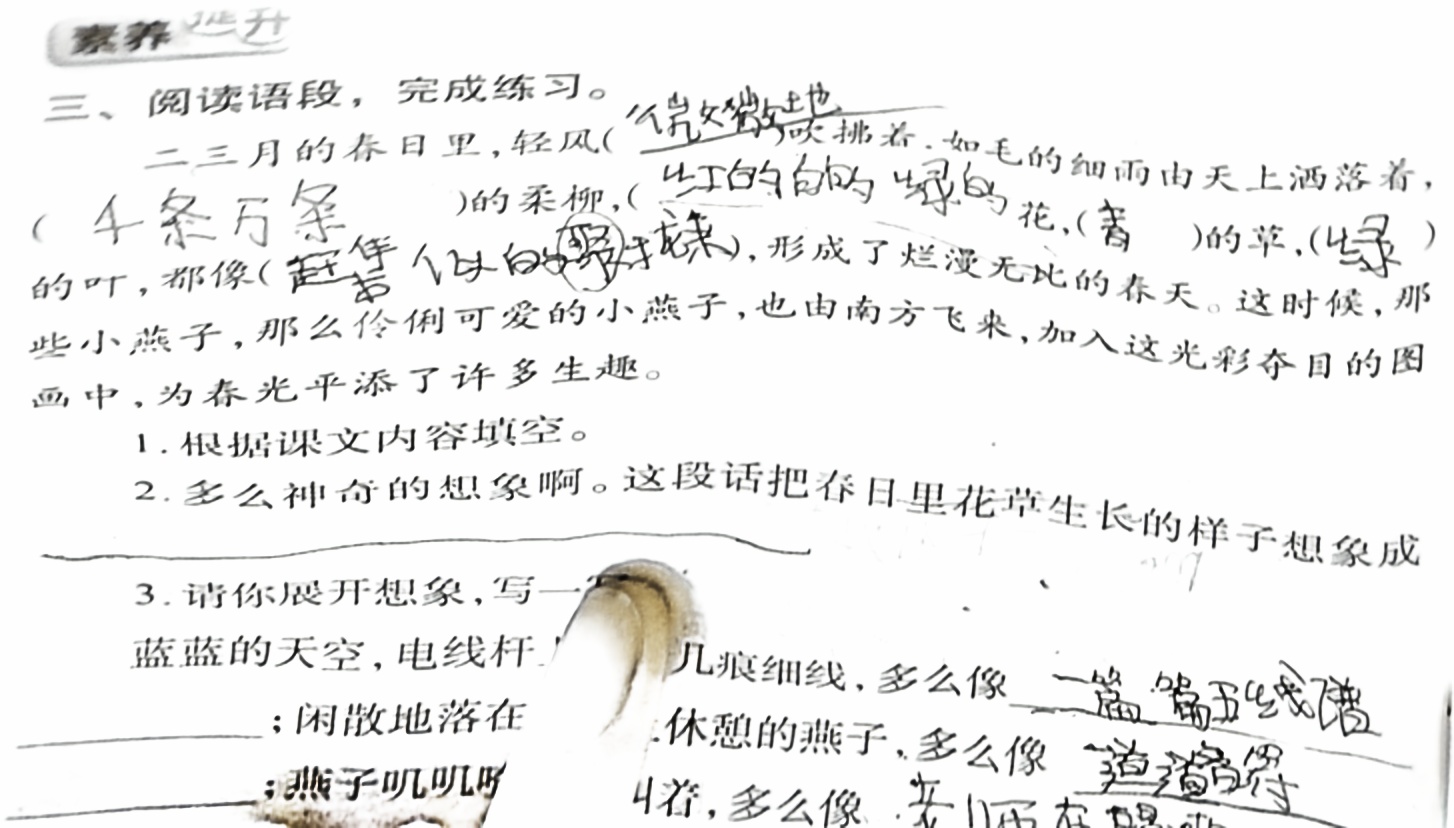 素养提升
三、阅读语段，完成练习。
二三月的春日里，轻风(微微地)吹拂着．如毛的细雨由天上洒落着，
(千条万条)的柔柳，(红的白的绿的花，(青)的草，(绿)
的叶，都像(赶集似的聚拢来)，形成了烂漫无比的春天。这时候，那
些小燕子，那么伶俐可爱的小燕子，也由南方飞来，加入这光彩夺目的图
画中，为春光平添了许多生趣。
1．根据课文内容填空。
2．多么神奇的想象啊。这段话把春日里花草生长的样子想象成
3．请你展开想象，写一
蓝蓝的天空，电线杆 几痕细线，多么像 一篇篇五线谱
；闲散地落在 休憩的燕子，多么像
；燕子叽叽 着，多么像